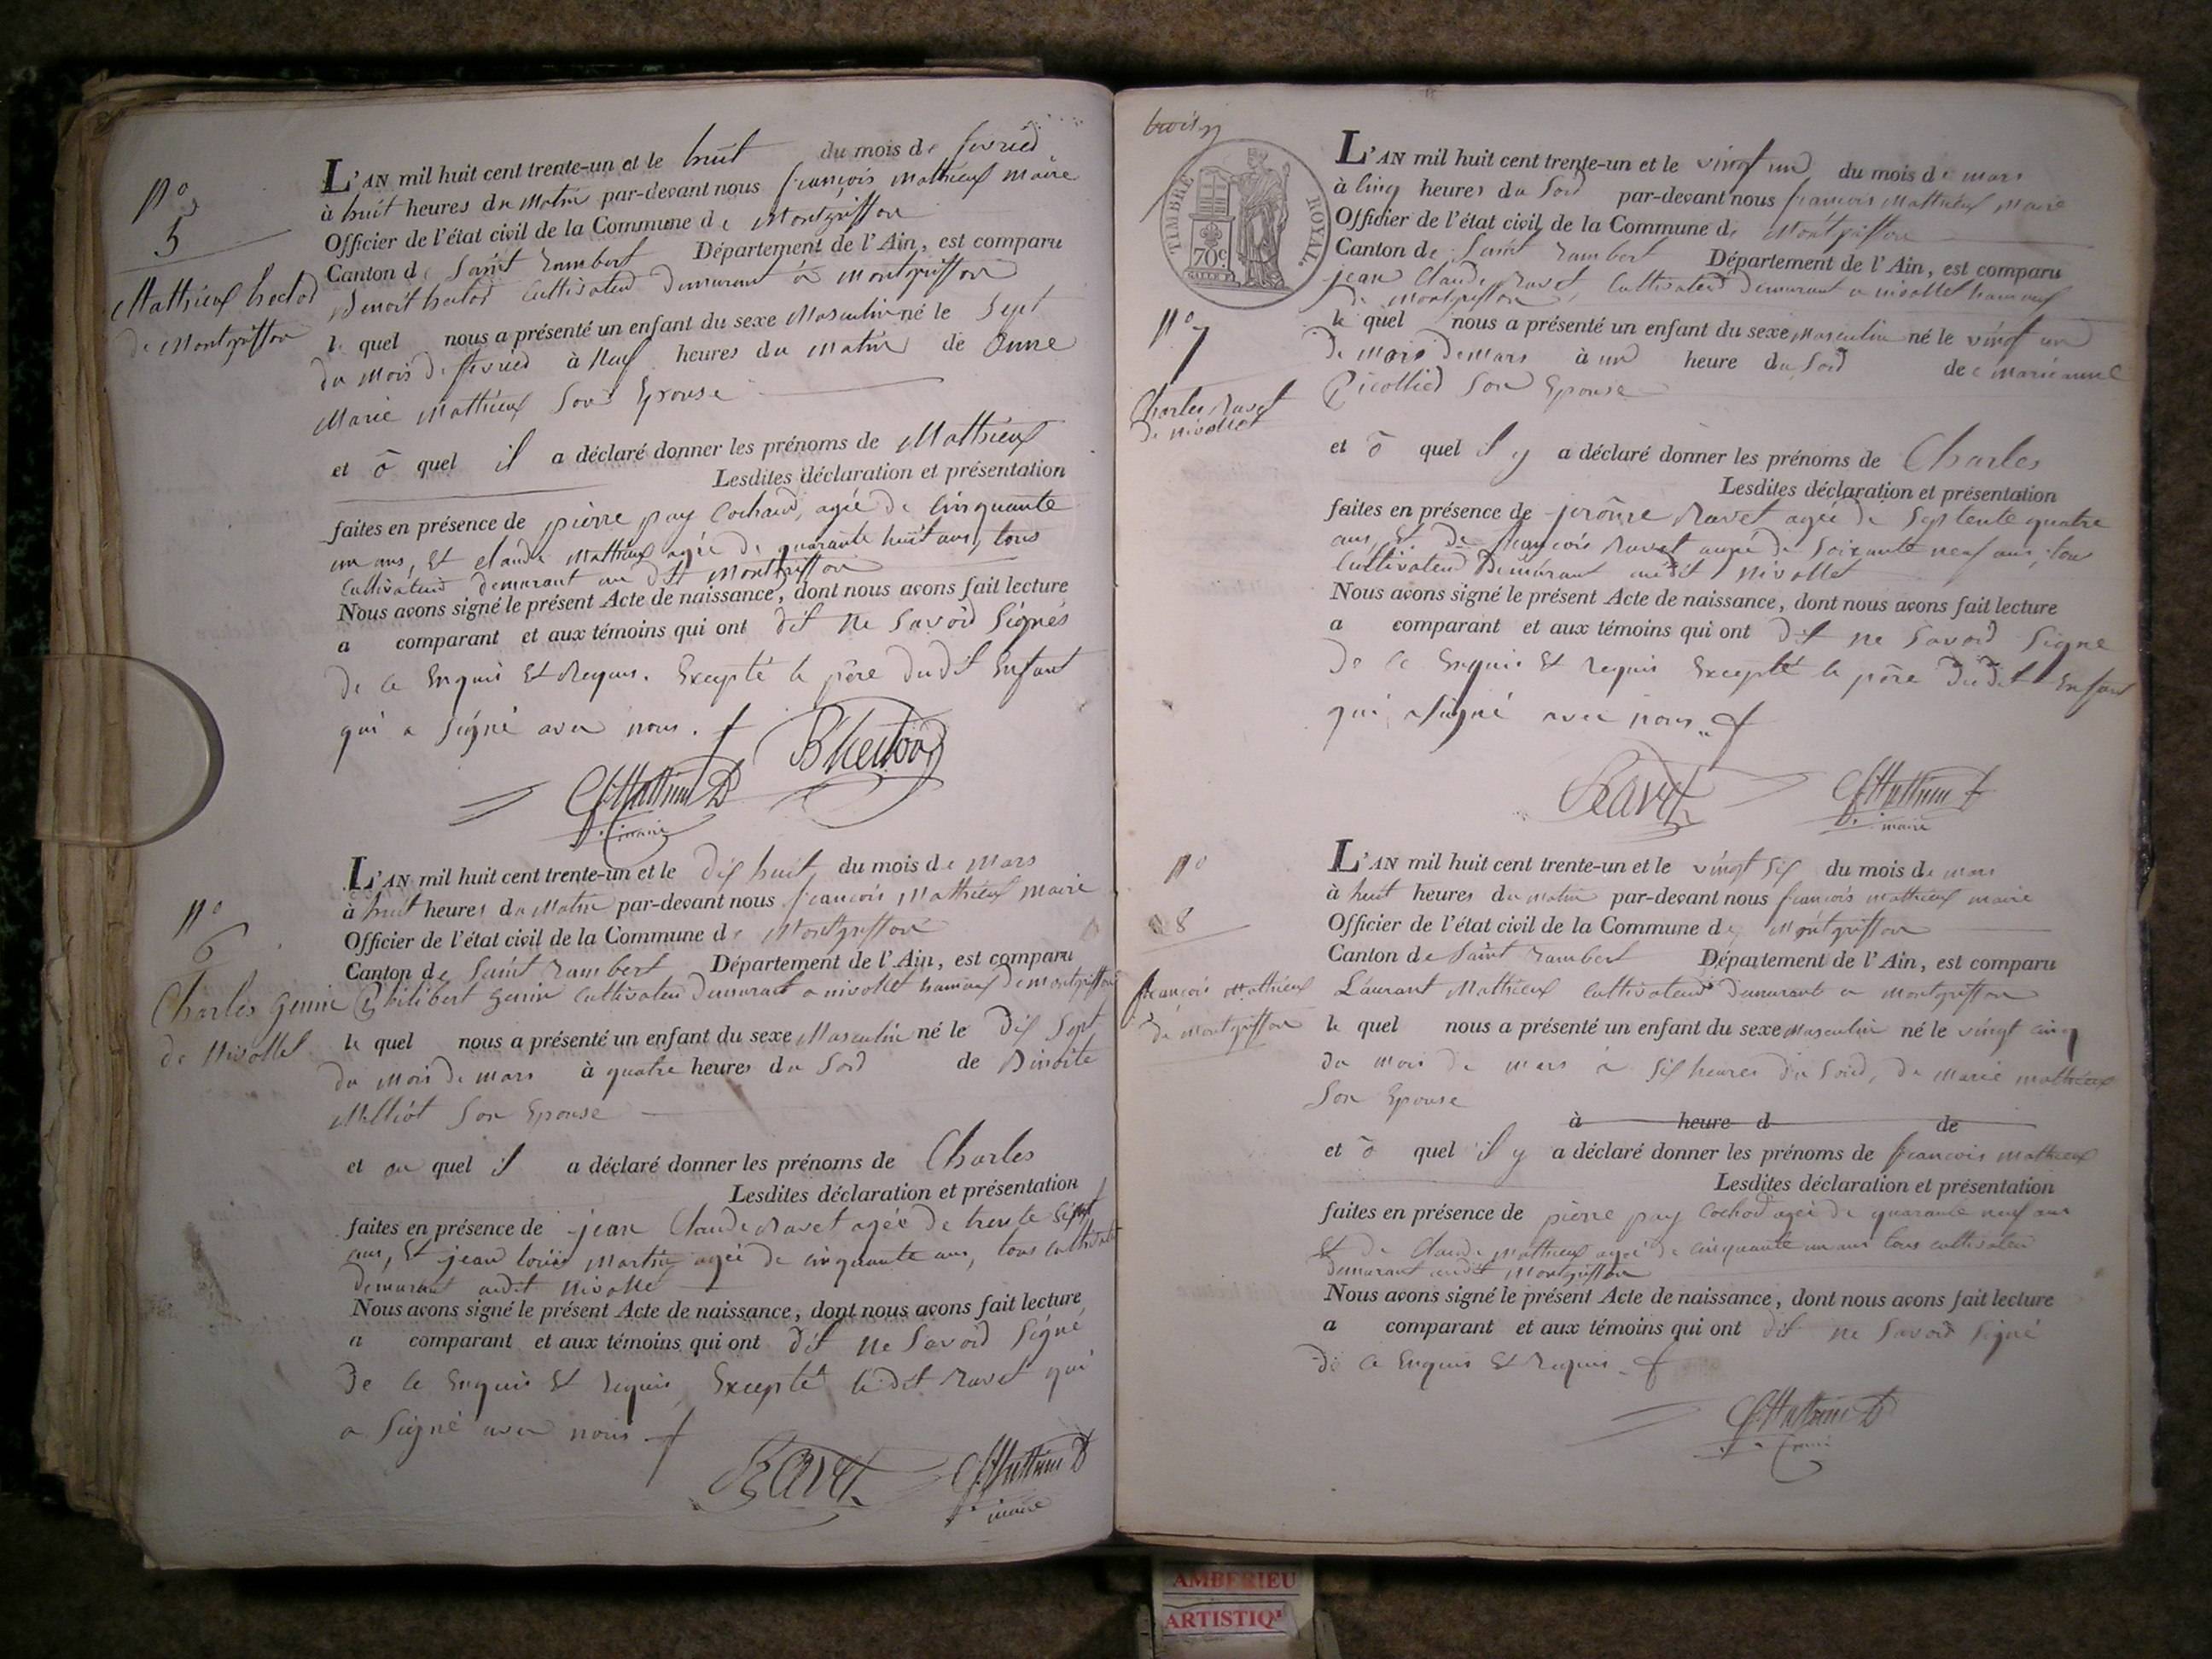 N° 5
Mathieux hector
de Montgriffon
L'AN mil huit cent trente-un et le huit du mois de fevried
à huit heures du Matin par-devant nous françois Mathieux Maire
Officier de l'état civil de la Commune de Montgriffon
Canton de Saint rambert Département de l'Ain, est comparu
Benoit hector Cultivateur demurant à Montgriffon
le quel nous a présenté un enfant du sexe Masculin né le Sept
du Mois de fevried à Neuf heures du Matin de Anne
Marie Mathieux Son Epouse
et ô quel il a déclaré donner les prénoms de Mathieux
Lesdites déclaration et présentation
faites en présence de pierre puy Cochaud, agée de Cinquante
un ans, Et claude Mathieux agée de quarante huit ans, tous
Cultivateurs demurant au dit Montgriffon
Nous avons signé le présent Acte de naissance, dont nous avons fait lecture
a comparant et aux témoins qui ont dit ne Savoid Signés
de Ce Enquis Et Requis. Excepté le père dudit Enfant
qui a Signé avec nous.
BHector
fMathieux
maire
N° 6
Charles genin
de Nivollet
L'AN mil huit cent trente-un et le dix huit du mois de Mars
à huit heures du Matin par-devant nous françois Mathieux Maire
Officier de l'état civil de la Commune de Montgriffon
Canton de Saint rambert Département de l'Ain, est comparu
Philibert genin Cultivateur demurant a nivollet hameaux de montgriffon
le quel nous a présenté un enfant du sexe Masculin né le dix Sept
du Mois de mars à quatre heures du Soid de Binoite
Milliot Son Epouse
et au quel il a déclaré donner les prénoms de Charles
Lesdites déclaration et présentation
faites en présence de jean Claude Ravet agée de trente Sept
ans, Et jean louis Martin agée de cinquante ans, tous cultivateur
demurant audit Nivollet
Nous avons signé le présent Acte de naissance, dont nous avons fait lecture
a comparant et aux témoins qui ont dit ne Savoid Signé
de Ce Enquis Et requis, Excepté ledit Ravet qui
a Signé avec nous
Ravet
fMathieux
maire
trois
TIMBRE ROYAL.
70c
N° 7
Charles Ravet
de nivollet
L'AN mil huit cent trente-un et le vingt un du mois de mars
à Cinq heures du Soid par-devant nous françois Mathieux Maire
Officier de l'état civil de la Commune de Montgriffon
Canton de Saint rambert Département de l'Ain, est comparu
jean Claude Ravet, Cultivateur demurant a nivollet hameaux
de montgriffon
le quel nous a présenté un enfant du sexe Masculin né le vingt un
de mois de mars à un heure du Soid de marieanne
Picollied Son Epouse
et ô quel il y a déclaré donner les prénoms de Charles
Lesdites déclaration et présentation
faites en présence de jerôme Ravet agée de Septente quatre
ans, Et de françois Ravet augé de Soixante neuf ans, tous
Cultivateur Demurant audit Nivollet
Nous avons signé le présent Acte de naissance, dont nous avons fait lecture
a comparant et aux témoins qui ont dit ne Savoid Signe
de Ce Enquis Et requis Excepté le père dudit Enfant
qui a Signé avec nous
Ravet
fMathieux
maire
N° 8
françois Mathieux
de Montgriffon
L'AN mil huit cent trente-un et le vingt Six du mois de mars
à huit heures du matin par-devant nous françois mathieux maire
Officier de l'état civil de la Commune de Montgriffon
Canton de Saint rambert Département de l'Ain, est comparu
Laurant Mathieux Cultivateur demurant a montgriffon
le quel nous a présenté un enfant du sexe Masculin né le vingt cinq
du mois de mars à Six heures du Soid, de Marie mathieux
Son Epouse
à heure d de
et ô quel il y a déclaré donner les prénoms de françois mathieux
Lesdites déclaration et présentation
faites en présence de pierre puy Cochod agée de quarante neuf ans
Et de Claude Mathieux agée de Cinquante un ans tous cultivateur
demurant audit Montgriffon
Nous avons signé le présent Acte de naissance, dont nous avons fait lecture
a comparant et aux témoins qui ont dit ne Savoid Signé
de Ce Enquis Et requis
fMathieux
maire
AMBERIEU
ARTISTIQ